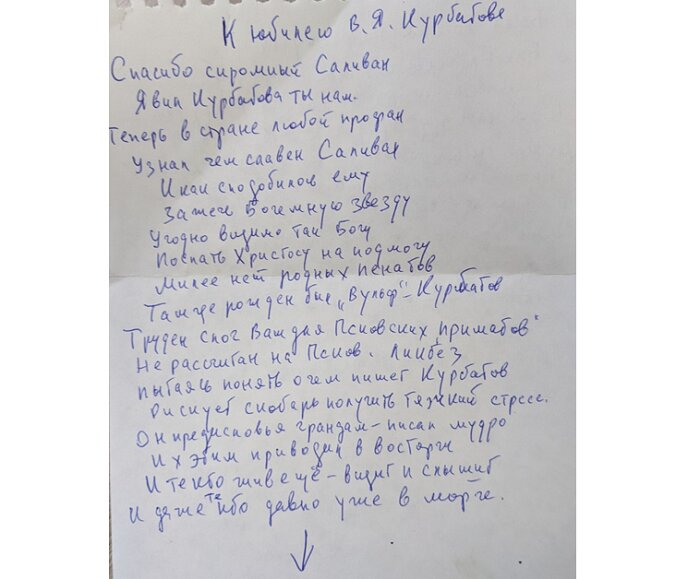 К юбилею В. Я. Курбатова
Спасибо скромный Салаван
Явил Курбатова ты нам.
Теперь в стране любой профан
Узнал чем славен Салаван
И как сподобилось ему
Зажечь Богемную звезду
Угодно видимо так Богу
Послать Христосу на подмогу
Милее нет родных пенатов
Там же рожден был „Вульф"-Курбатов
Труден слог Ваш для Псковских „приматов"
Не рассчитан на Псков. Ликбез
Пытаясь понять о чем пишет Курбатов
Рискует скобарь получить тяжкий стресс.
Он предисловья грандам – писал мудро
Их этим приводил в восторги
И те кто жив ещё – видит и слышит
И даже те кто давно уже в морге.